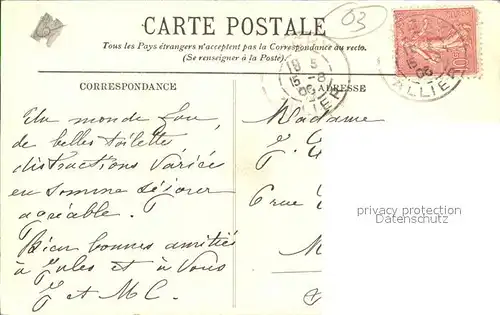 03
CARTE POSTALE
Tous les Pays étrangers n'acceptent pas la Correspondance au recto.
(Se renseigner à la Poste)
CORRESPONDANCE
ADRESSE
ALLIER
Un monde fou,
de belles toilettes
distractions variées
en somme séjour
agréable.
Bien bonnes amitiés
à Jules et à Vous
et M C.
Madame
6 rue
privacy protection
Datenschutz